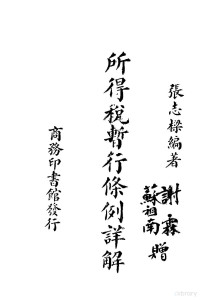 張志樑編著
謝霖
蘇祖南
贈
所得稅暫行條例詳解
商務印書館發行